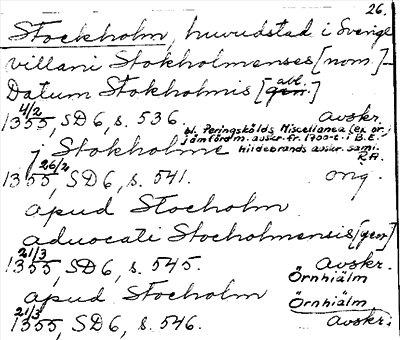 26.
Stockholm, huvudstad i Sverige
villani Stokholmenses [nom.] -
Datum Stokholmis [gen.] abl.
4/2
1355, SD6, s. 536. Avskr.
bl. Peringskölds Miscellanea (ex or.)
jämförd m. avskr. fr. 1700-t. i B.E.
Hildebrands avskr. saml.
R.A.
j Stokholme
26/2
1355, SD6, s. 541. orig.
apud Stocholm
aduocati Stocholmensis [gen]
21/3
1355, SD6, s. 545. Avskr.
Örnhiälm
apud Stocholm Örnhiälm
21/3
1355, SD6, s. 546. Avskr.